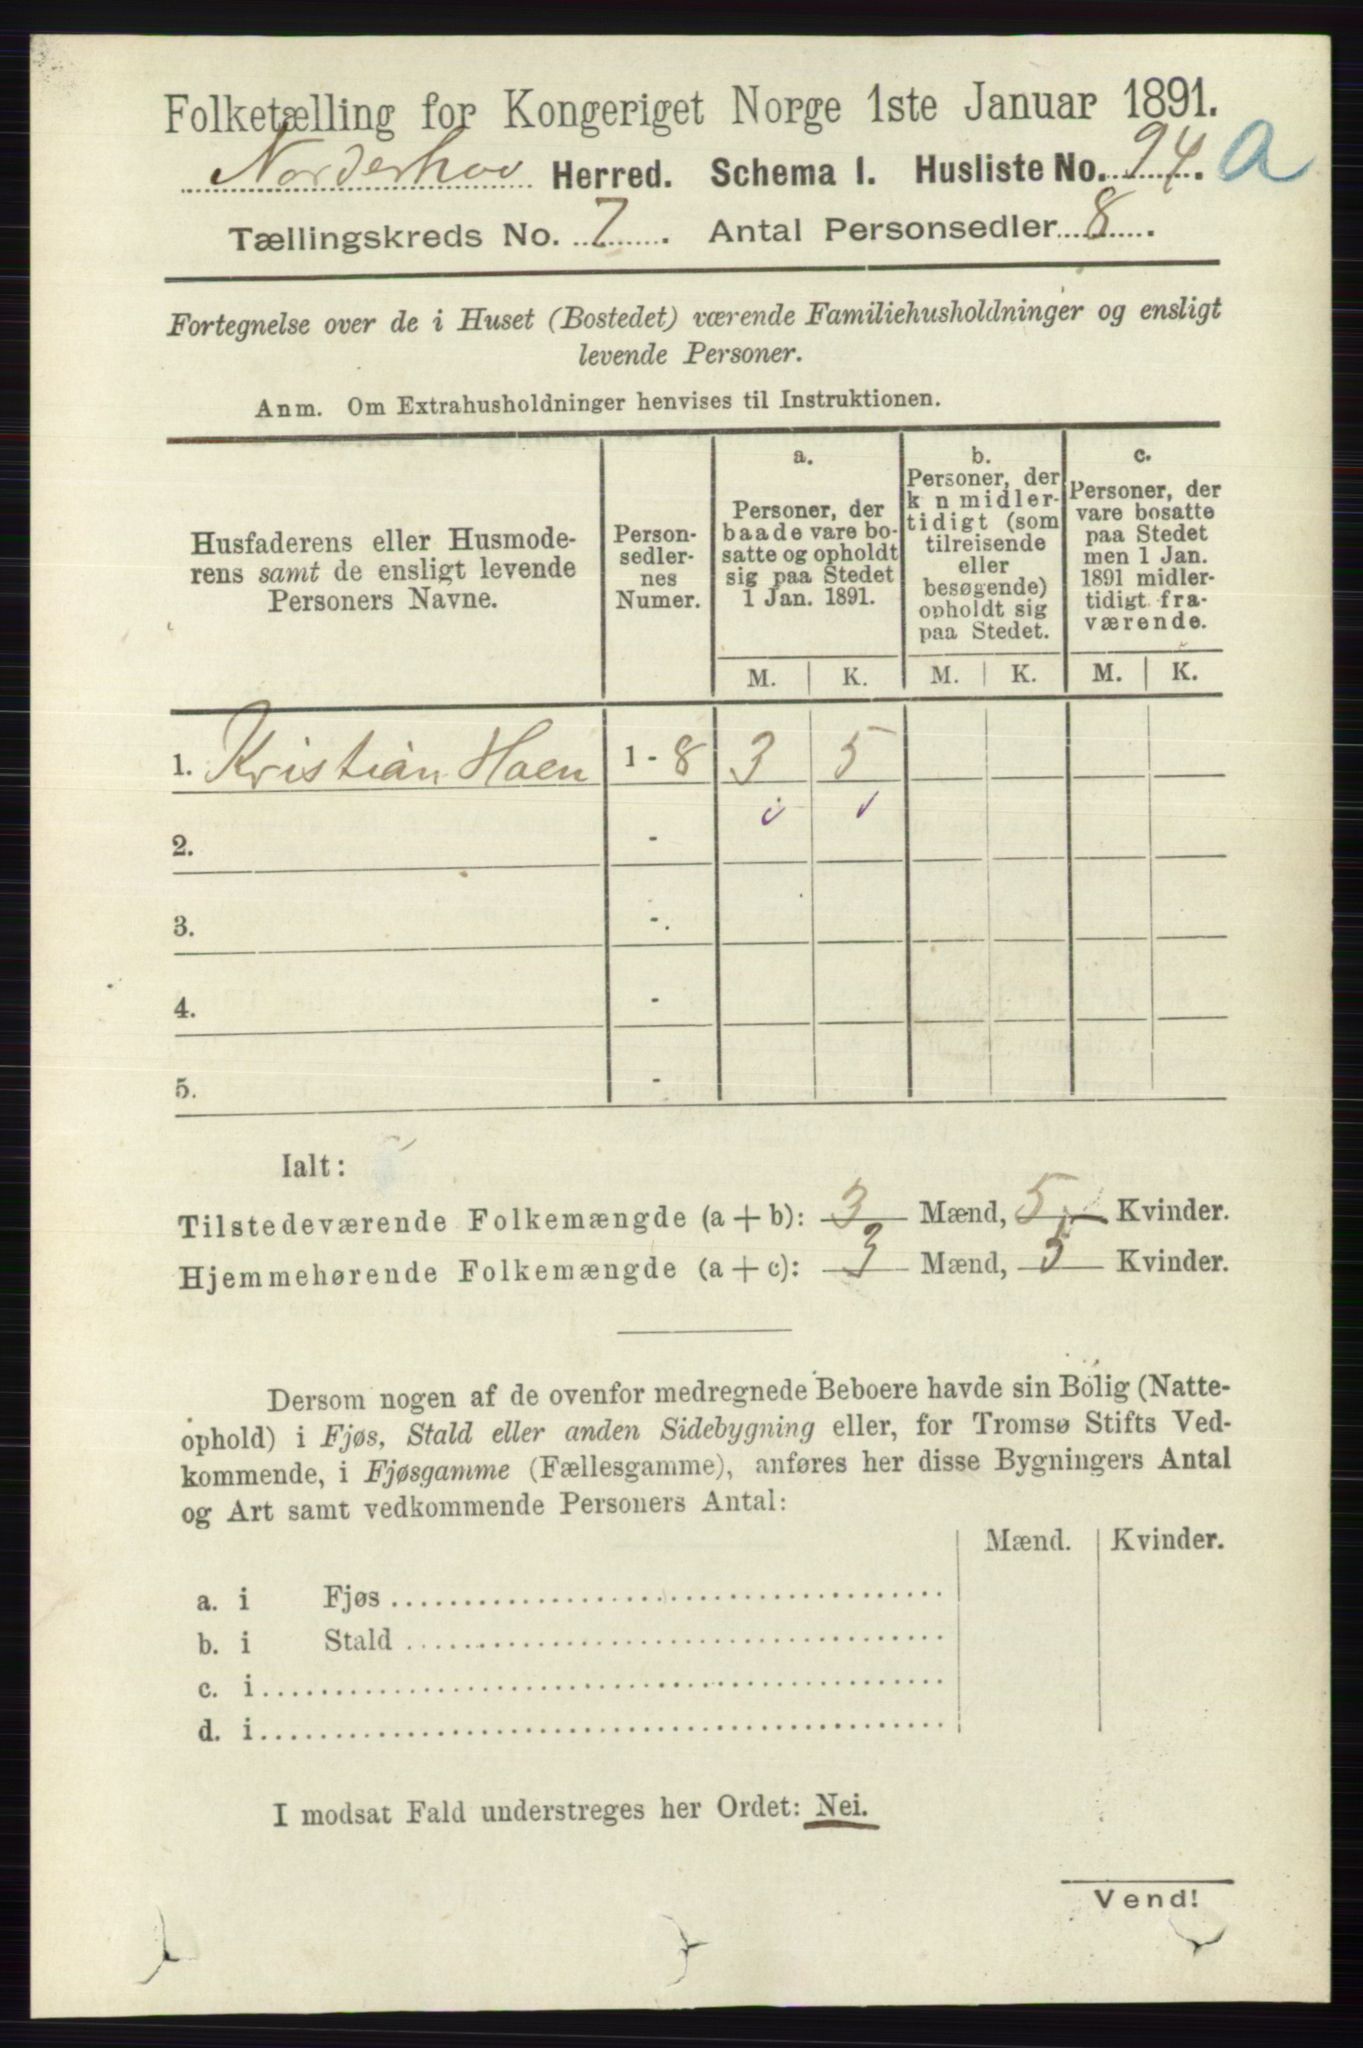 Folketælling for Kongeriget Norge 1ste Januar 1891.
Norderhov Herred. Schema I. Husliste No. 94. a
Tællingskreds No. 7. Antal Personsedler 8.
Fortegnelse over de i Huset (Bostedet) værende Familiehusholdninger og ensligt
levende Personer.
Anm. Om Extrahusholdninger henvises til Instruktionen.
Husfaderens eller Husmode-
rens samt de ensligt levende
Personers Navne.
Person-
sedler-
nes
Numer.
a.
Personer, der
baade vare bo-
satte og opholdt
sig paa Stedet
1 Jan. 1891.
b.
Personer, der
k n midler-
tidigt (som
tilreisende
eller
besøgende)
opholdt sig
paa Stedet.
c.
Personer, der
vare bosatte
paa Stedet
men 1 Jan.
1891 midler-
tidigt fra-
værende.
M. K. M. K. M. K.
1. Kristian Haen 1 - 8 3 5
2. -
3. -
4. -
5. -
Ialt:
Tilstedeværende Folkemængde (a + b): 3 Mænd, 5 Kvinder.
Hjemmehørende Folkemængde (a + c): 3 Mænd, 5 Kvinder.
Dersom nogen af de ovenfor medregnede Beboere havde sin Bolig (Natte-
ophold) i Fjøs, Stald eller anden Sidebygning eller, for Tromsø Stifts Ved-
kommende, i Fjøsgamme (Fællesgamme), anføres her disse Bygningers Antal
og Art samt vedkommende Personers Antal:
Mænd. Kvinder.
a. i Fjøs
b. i Stald
c. i
d. i
I modsat Fald understreges her Ordet: Nei.
Vend!